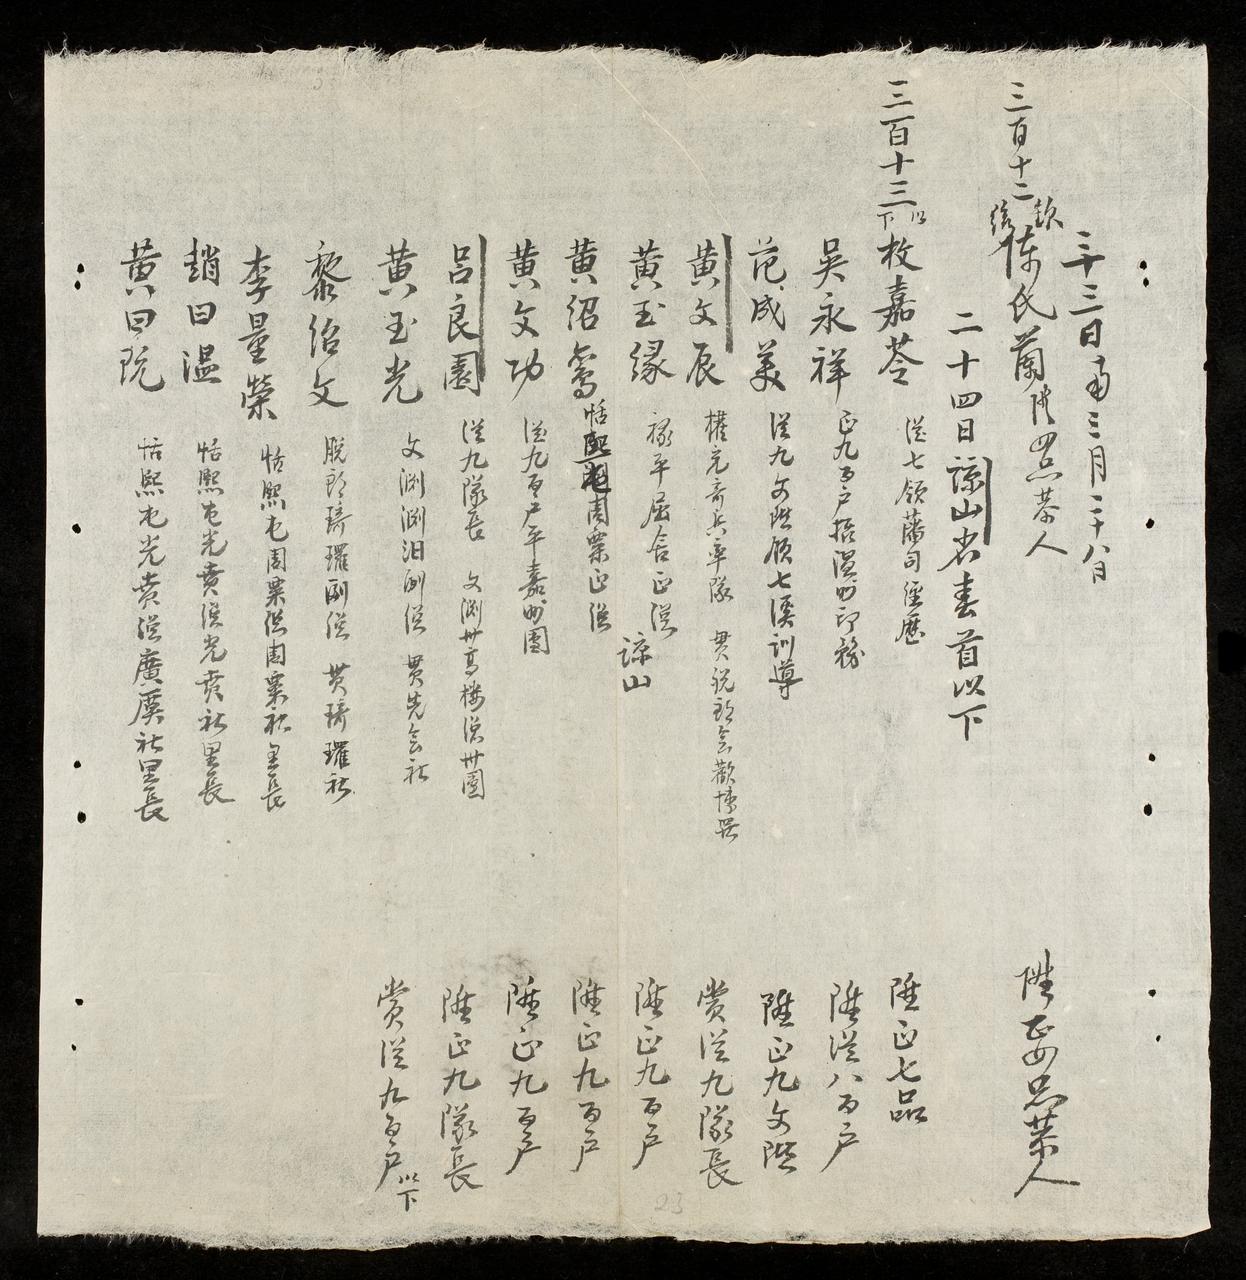 二十三日 三月二十八日
三百十二 欽給 陳氏蘭 四品恭人 陞正四品恭人
二十四日諒山省春首以下
三百十三 以下 枚嘉苓 從七領藩司經歷 陞正七品
吳永祥 正九百戶 溫州印務 陞從八百戶
范成美 從九文階領七溪訓導 陞正九文階
黃文辰 權充奇兵率隊 貫脫朗會歡 賞從九隊長
黃玉緣 祿平屈舍正總 諒山 陞正九百戶
黃紹鸞 恬熙 周粟正總 陞正九百戶
黃文功 從九百戶平嘉州團 陞正九百戶
呂良園 從九隊長 文淵州高樓總州團 陞正九隊長
黃玉光 文淵淵汨副總 貫先會社 賞從九百戶 以下
黎紹文 脫朗琦瓘副總 貫琦瓘社
李量榮 恬熙屯周粟總周粟社里長
趙曰溫 恬熙屯光賁總光賁社里長
黃曰 恬熙屯光賁總廣虞社里長
23